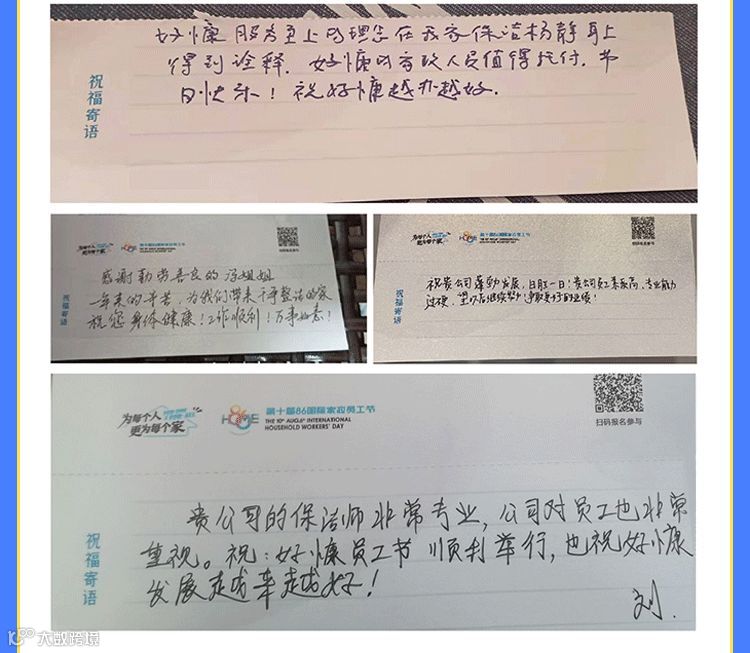 好慷服务至上的理念在我家保洁杨静身上
得到诠释。好慷的家政人员值得托付。节
日快乐！祝好慷越办越好。
祝福寄语
为每个人
更为每个家
86
HOME
第十届86国际家政员工节
THE 10th AUG.6th INTERNATIONAL
HOUSEHOLD WORKERS' DAY
扫码报名参与
感谢勤劳善良的冯姐姐
一年来的辛苦，为我们带来干净整洁的家
祝您身体健康！工作顺利！万事如意！
祝福寄语
为每个人
更为每个家
86
HOME
第十届86国际家政员工节
THE 10th AUG.6th INTERNATIONAL
HOUSEHOLD WORKERS' DAY
扫码报名参与
祝贵公司蓬勃发展，日胜一日！贵公司员工素质高，专业能力
过硬，望以后继续努力争取更好的业绩！
祝福寄语
为每个人
更为每个家
86
HOME
第十届86国际家政员工节
THE 10th AUG.6th INTERNATIONAL
HOUSEHOLD WORKERS' DAY
扫码报名参与
贵公司的保洁师非常专业，公司对员工也非常
重视。祝：好慷员工节顺利举行，也祝好慷
发展越来越好！
刘.
祝福寄语
大数跨境